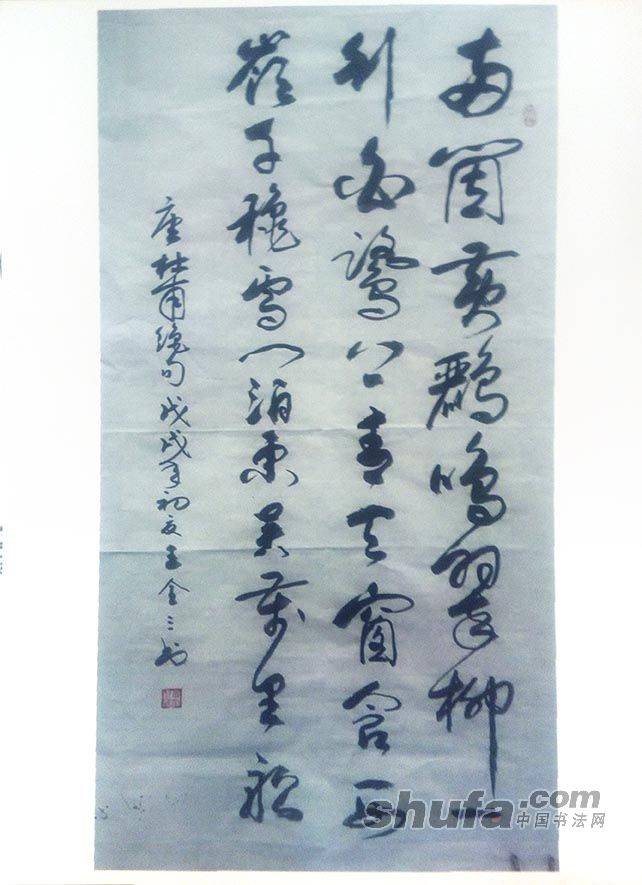 兩箇黃鸝鳴翠柳一
行白鷺上青天窗含西
嶺千秋雪門泊東吳萬里船
唐杜甫绝句戊戌年初夏王金三书
shufa.com
中国书法网